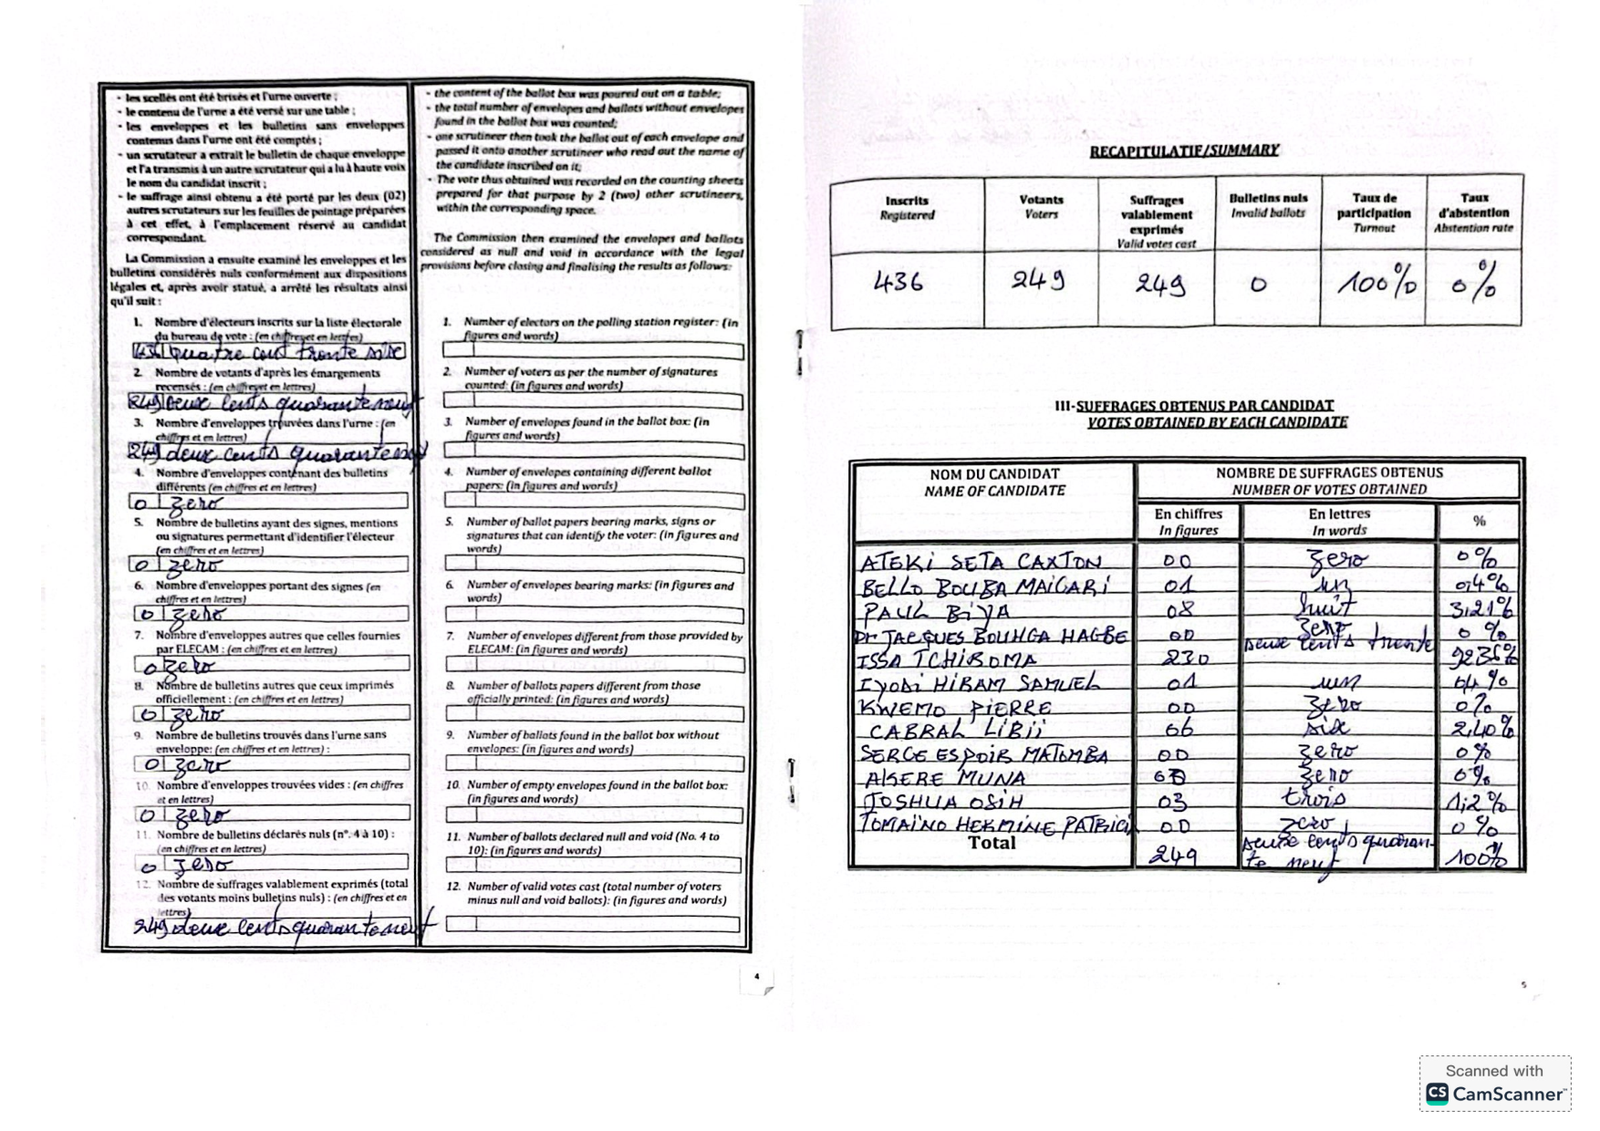 - les scellés ont été brisés et l'urne ouverte ;
- le contenu de l'urne a été versé sur une table ;
- les enveloppes et les bulletins sans enveloppes
contenus dans l'urne ont été comptés ;
- un scrutateur a extrait le bulletin de chaque enveloppe
et l'a transmis à un autre scrutateur qui a lu à haute voix
le nom du candidat inscrit ;
- le suffrage ainsi obtenu a été porté par les deux (02)
autres scrutateurs sur les feuilles de pointage préparées
à cet effet, à l'emplacement réservé au candidat
correspondant.
La Commission a ensuite examiné les enveloppes et les
bulletins considérés nuls conformément aux dispositions
légales et, après avoir statué, a arrêté les résultats ainsi
qu'il suit :
1. Nombre d'électeurs inscrits sur la liste électorale
du bureau de vote : (en chiffres et en lettres)
436 quatre cent trente six
2. Nombre de votants d'après les émargements
recensés : (en chiffres et en lettres)
249 deux cents quarante neuf
3. Nombre d'enveloppes trouvées dans l'urne : (en
chiffres et en lettres)
249 deux cents quarante neuf
4. Nombre d'enveloppes contenant des bulletins
différents (en chiffres et en lettres)
0 zero
5. Nombre de bulletins ayant des signes, mentions
ou signatures permettant d'identifier l'électeur
(en chiffres et en lettres)
0 zero
6. Nombre d'enveloppes portant des signes (en
chiffres et en lettres)
0 zero
7. Nombre d'enveloppes autres que celles fournies
par ELECAM : (en chiffres et en lettres)
0 zero
8. Nombre de bulletins autres que ceux imprimés
officiellement : (en chiffres et en lettres)
0 zero
9. Nombre de bulletins trouvés dans l'urne sans
enveloppe: (en chiffres et en lettres) :
0 zero
10. Nombre d'enveloppes trouvées vides : (en chiffres
et en lettres)
0 zero
11. Nombre de bulletins déclarés nuls (n°. 4 à 10) :
(en chiffres et en lettres)
0 zero
12. Nombre de suffrages valablement exprimés (total
des votants moins bulletins nuls) : (en chiffres et en
lettres)
249 deux cents quarante neuf
- the content of the ballot box was poured out on a table;
- the total number of envelopes and ballots without envelopes
found in the ballot box was counted;
- one scrutineer then took the ballot out of each envelope and
passed it onto another scrutineer who read out the name of
the candidate inscribed on it;
- The vote thus obtained was recorded on the counting sheets
prepared for that purpose by 2 (two) other scrutineers,
within the corresponding space.
The Commission then examined the envelopes and ballots
considered as null and void in accordance with the legal
provisions before closing and finalising the results as follows:
1. Number of electors on the polling station register: (in
figures and words)
2. Number of voters as per the number of signatures
counted: (in figures and words)
3. Number of envelopes found in the ballot box: (in
figures and words)
4. Number of envelopes containing different ballot
papers: (in figures and words)
5. Number of ballot papers bearing marks, signs or
signatures that can identify the voter: (in figures and
words)
6. Number of envelopes bearing marks: (in figures and
words)
7. Number of envelopes different from those provided by
ELECAM: (in figures and words)
8. Number of ballots papers different from those
officially printed: (in figures and words)
9. Number of ballots found in the ballot box without
envelopes: (in figures and words)
10. Number of empty envelopes found in the ballot box:
(in figures and words)
11. Number of ballots declared null and void (No. 4 to
10): (in figures and words)
12. Number of valid votes cast (total number of voters
minus null and void ballots): (in figures and words)
4
RECAPITULATIF/SUMMARY
Inscrits Registered Votants Voters Suffrages valablement exprimés Valid votes cast Bulletins nuls Invalid ballots Taux de participation Turnout Taux d'abstention Abstention rate
436 249 249 0 100% 0%
III-SUFFRAGES OBTENUS PAR CANDIDAT
VOTES OBTAINED BY EACH CANDIDATE
NOM DU CANDIDAT NOMBRE DE SUFFRAGES OBTENUS
NAME OF CANDIDATE NUMBER OF VOTES OBTAINED
En chiffres En lettres %
In figures In words
ATEKI SETA CAXTON 00 zero 0%
BELLO BOUBA MAIGARI 01 un 0,4%
PAUL BIYA 08 huit 3,21%
Dr JACQUES BOUHGA HAGBE 00 zero 0 %
ISSA TCHIROMA 230 Deux cents trente 9236%
IYODI HIRAM SAMUEL 01 un 04%
KWEMO PIERRE 00 zero 0%
CABRAL LIBII 06 six 2,40%
SERGE ESPOIR MATOMBA 00 zero 0%
AKERE MUNA 00 zero 0%
JOSHUA OSIH 03 trois 1,2%
TOMAINO HERMINE PATRICI 00 zero 0%
Total 249 Deux cents quaran-
te neuf 100%
5
Scanned with
CS CamScanner